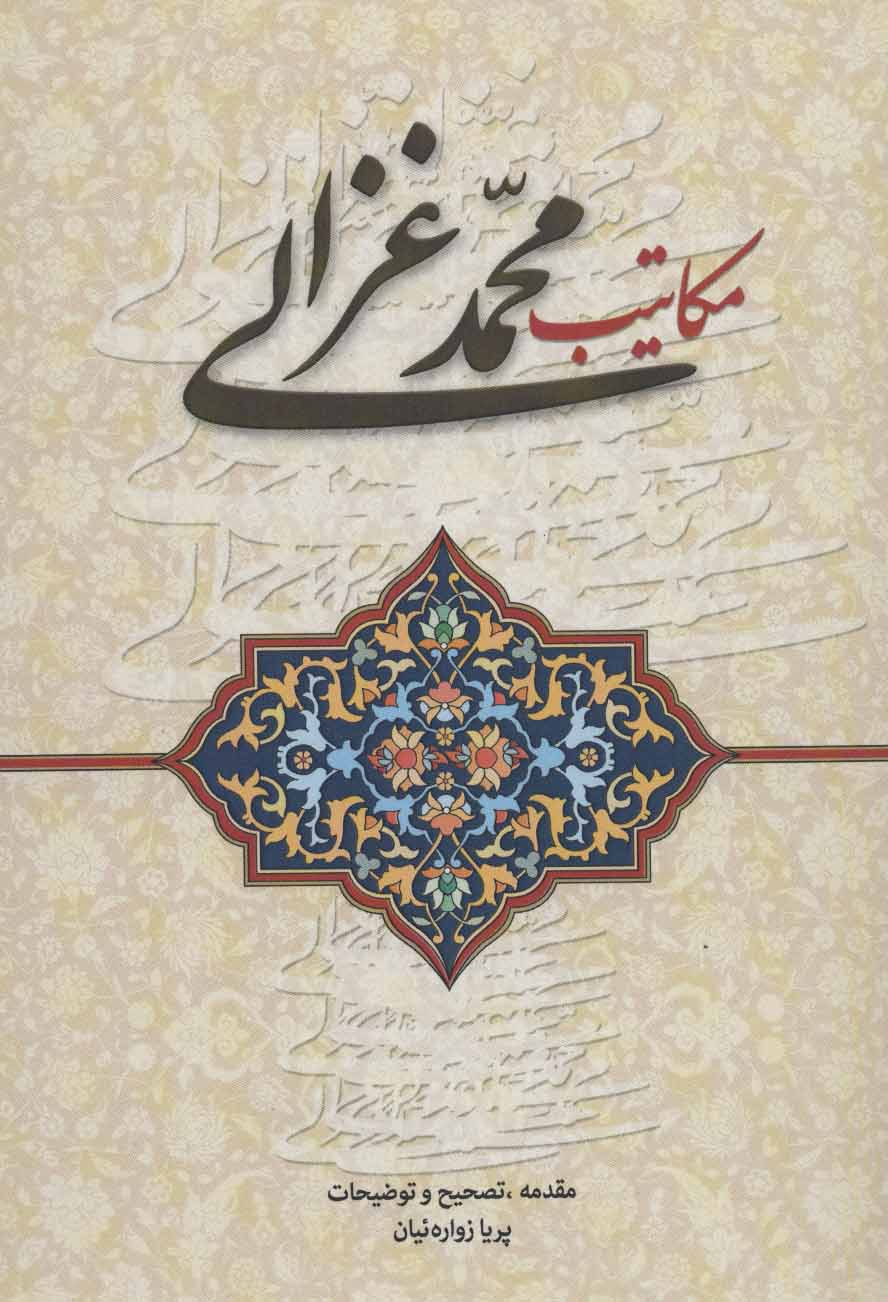 مکاتیب محمّد غزالی
مقدمه ، تصحیح و توضیحات
پریا زواره‌ئیان